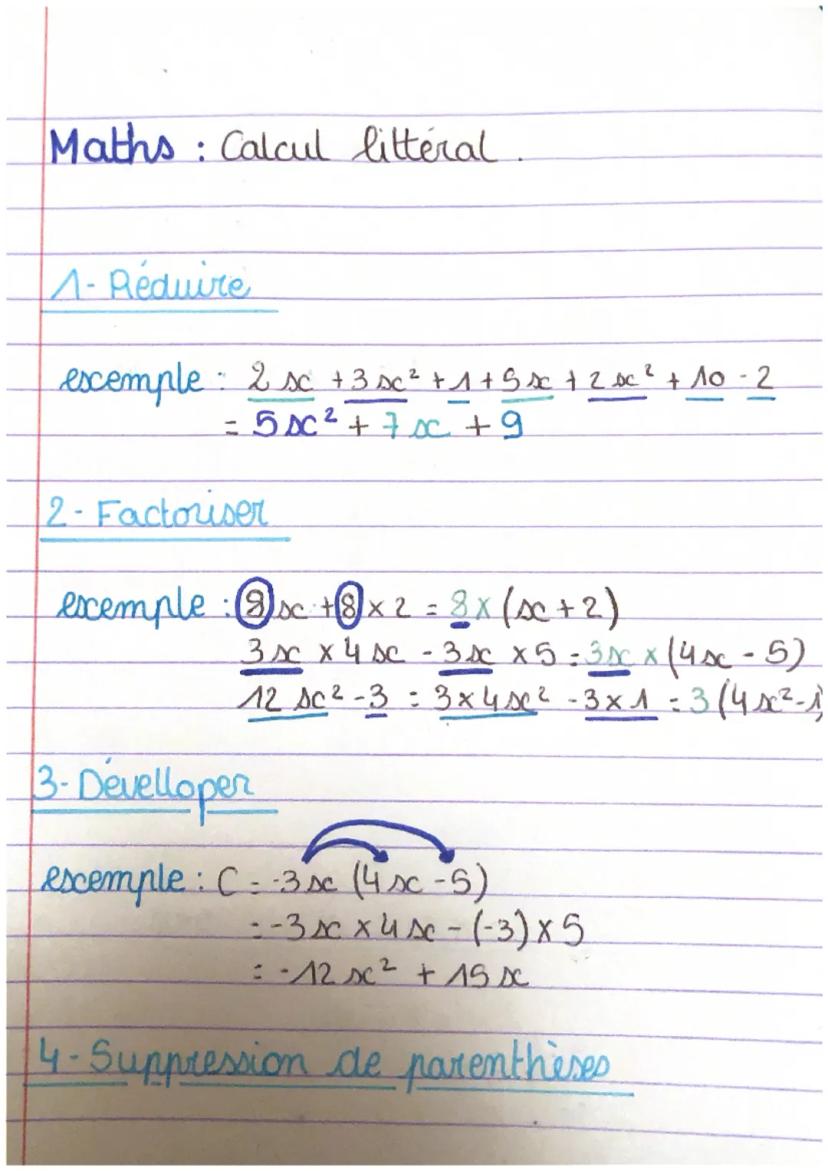 Maths : Calcul littéral .
1- Réduire
exemple : 2x + 3x² + 1 + 5x + 2x² + 10 - 2
= 5x² + 7x + 9
2- Factoriser
exemple : 8x + 8 × 2 = 8 × (x + 2)
3x × 4x - 3x × 5 = 3x × (4x - 5)
12x² - 3 = 3 × 4x² - 3 × 1 = 3 (4x² - 1)
3- Dévelloper
exemple : C = -3x (4x - 5)
= -3x × 4x - (-3) × 5
= -12x² + 15x
4- Suppression de parenthèses